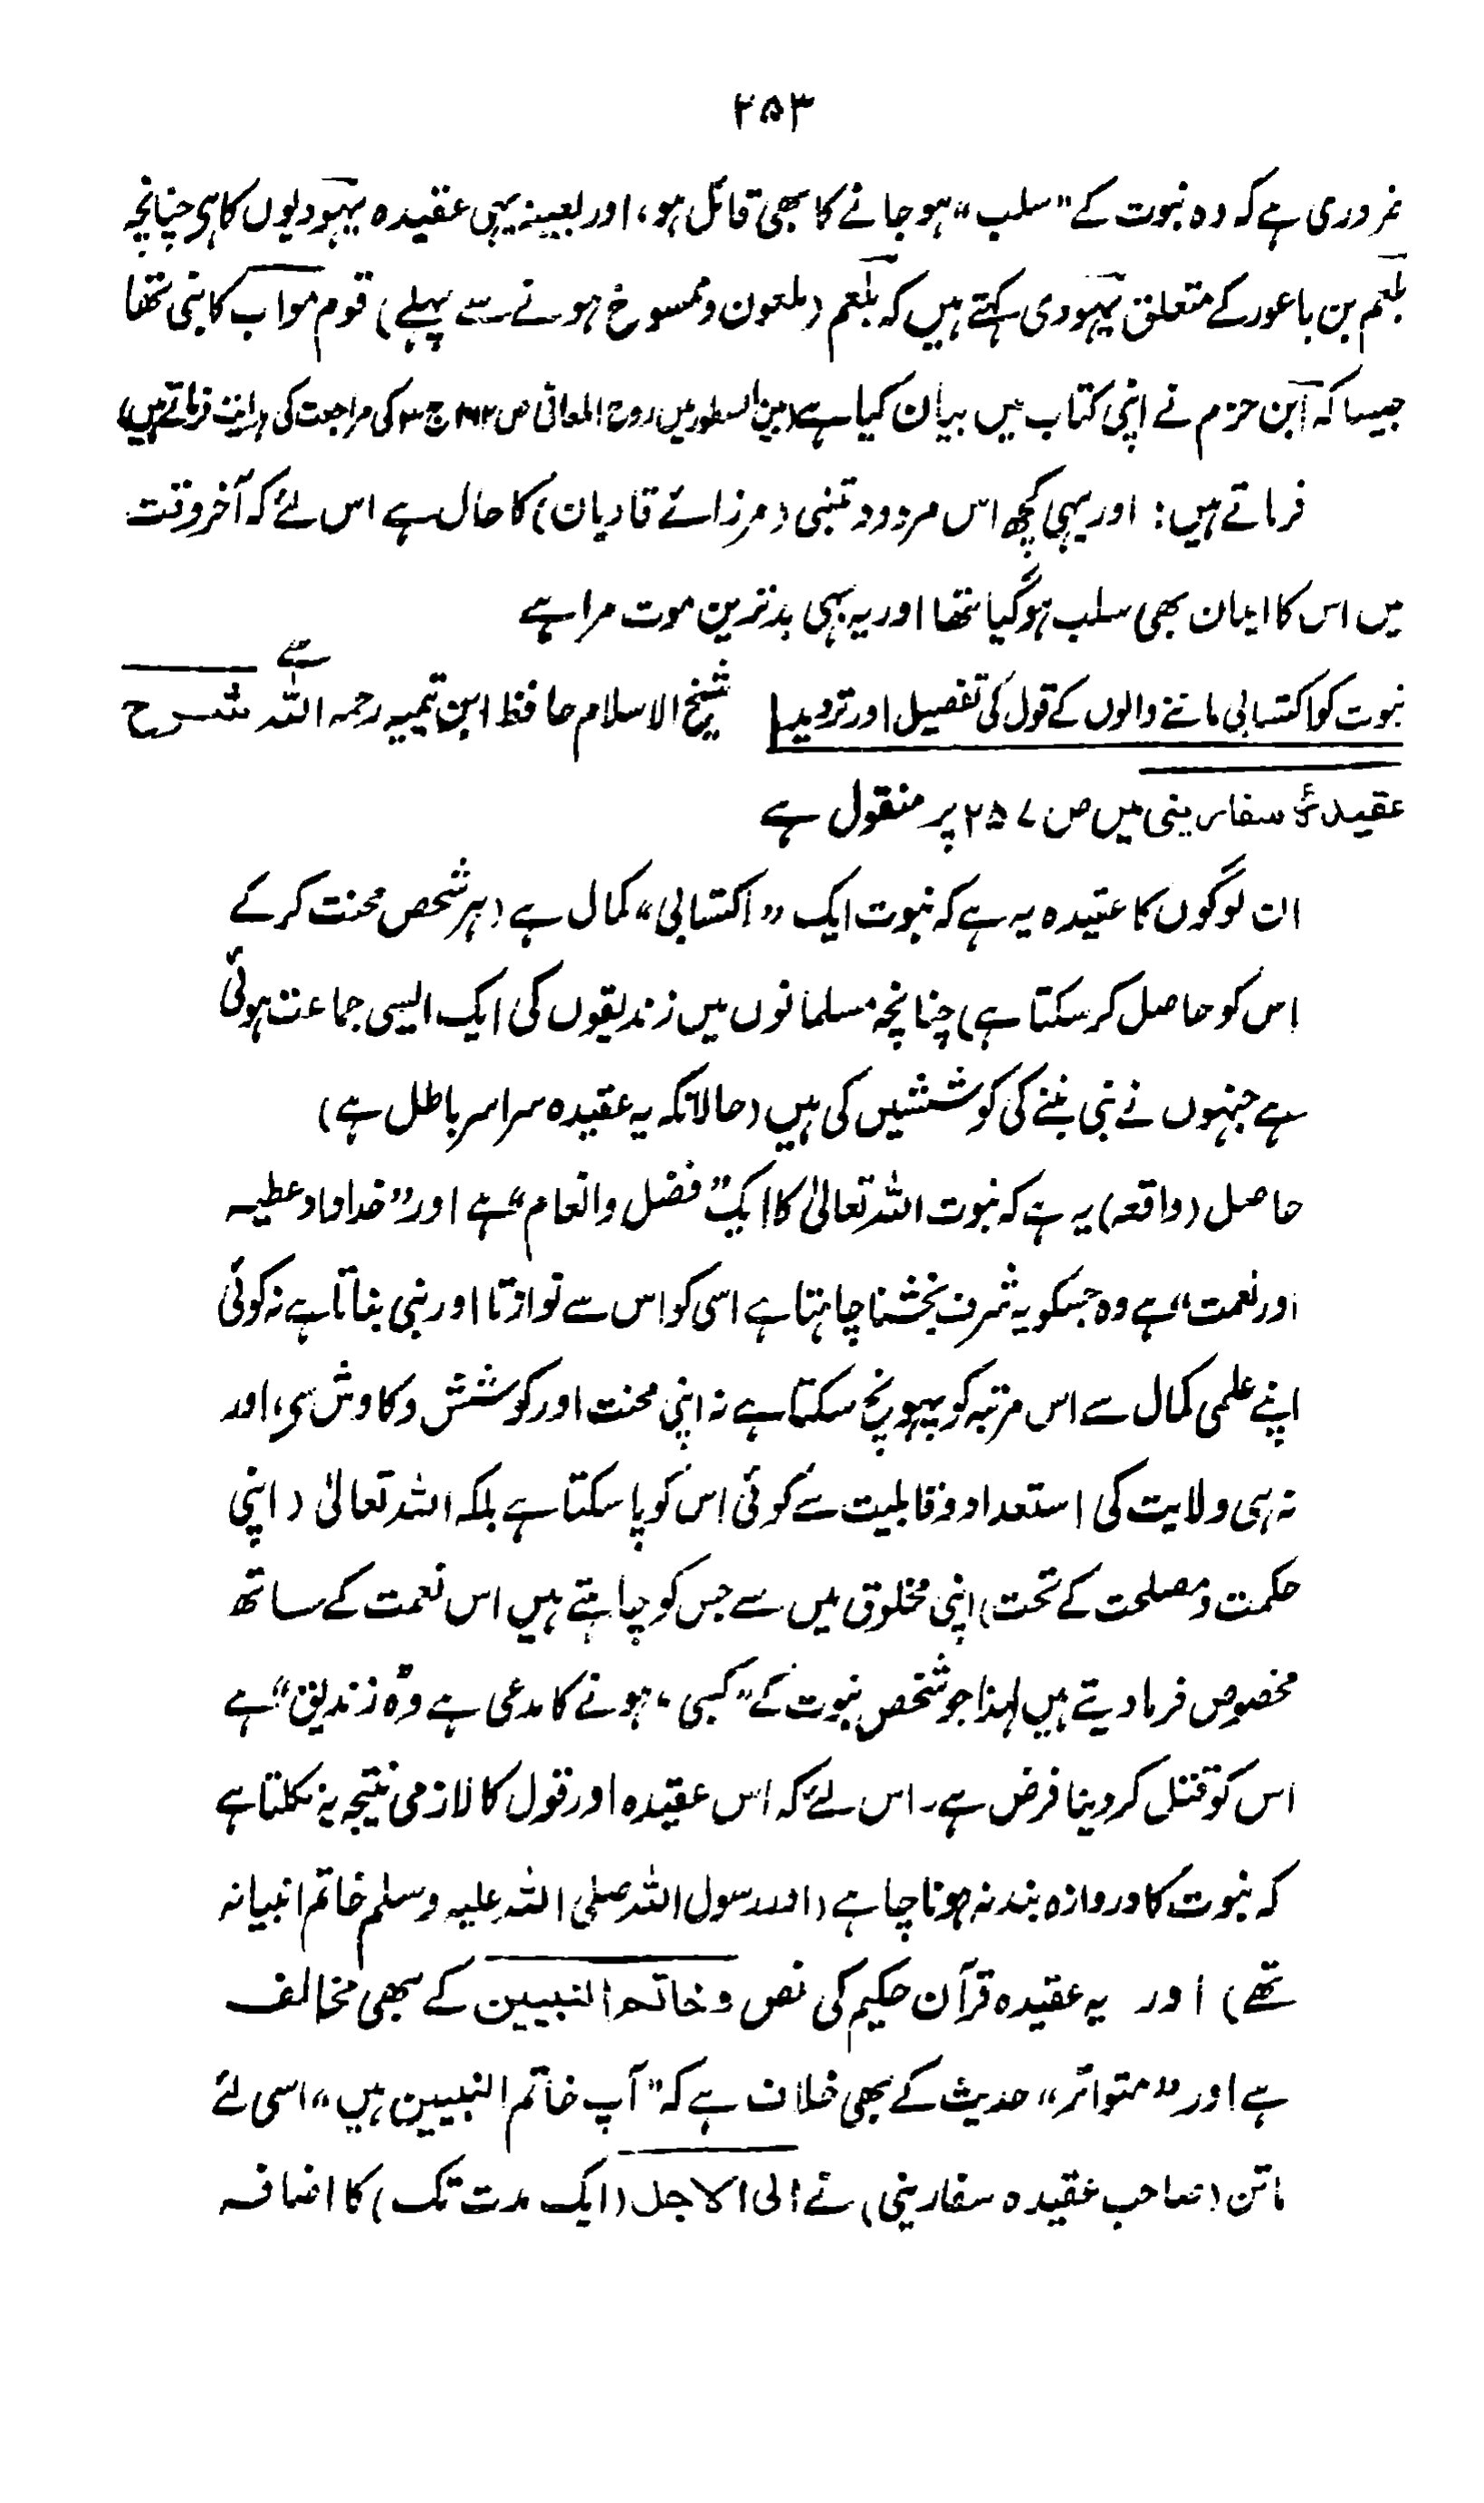 ۲۵۳
ضروری ہے کہ وہ نبوت کے "سلب" ہو جانے کا بھی قائل ہو، اور بعینہ یہی عقیدہ یہودیوں کا ہی چنانچہ
بلعم بن باعور کے متعلق یہودی کہتے ہیں کہ بلعم (ملعون و ممسوخ ہونے سے پہلے) قوم مواب کا نبی تھا
جیسا کہ ابن حزم نے اپنی کتاب میں بیان کیا ہے (بین السطور میں روح المعانی ص ج کی مراجعت کی ہدایت فرماتے ہیں)
فرماتے ہیں: اور یہی کچھ اس مردود متنبی (مرزائے قادیان) کا حال ہے اس لئے کہ آخر وقت
میں اس کا ایمان بھی سلب ہو گیا تھا اور یہ بھی بدترین موت مرا ہے
نبوت کو اکتسابی ماننے والوں کے قول کی تفصیل اور تردید | شیخ الاسلام حافظ ابن تیمیہ رحمہ اللہ سے شرح
عقیدۂ سفارینی میں ص ۲۵۷ پر منقول ہے
ان لوگوں کا عقیدہ یہ ہے کہ نبوت ایک "اکتسابی" کمال ہے (ہر شخص محنت کر کے
اس کو حاصل کر سکتا ہے) چنانچہ مسلمانوں میں زندیقوں کی ایک ایسی جماعت ہوئی
ہے جنہوں نے نبی بننے کی کوششیں کی ہیں (حالانکہ یہ عقیدہ سراسر باطل ہے)
حاصل (واقعہ) یہ ہے کہ نبوت اللہ تعالیٰ کا ایک "فضل و انعام" ہے اور "خداداد عطیہ
اور نعمت" ہے وہ جسکو یہ شرف بخشنا چاہتا ہے اسی کو اس سے نوازتا اور نبی بناتا ہے نہ کوئی
اپنے علمی کمال سے اس مرتبہ کو پہونچ سکتا ہے نہ اپنی محنت اور کوشش و کاوش سی، اور
نہ ہی ولایت کی استعداد و قابلیت سے کوئی اس کو پا سکتا ہے بلکہ اللہ تعالیٰ (اپنی
حکمت و مصلحت کے تحت) اپنی مخلوق میں سے جس کو چاہتے ہیں اس نعمت کے ساتھ
مخصوص فرما دیتے ہیں لہذا جو شخص نبوت کے "کسبی" ہونے کا مدعی ہے وہ "زندیق" ہے
اس کو قتل کر دینا فرض ہے۔ اس لئے کہ اس عقیدہ اور قول کا لازمی نتیجہ یہ نکلتا ہے
کہ نبوت کا دروازہ بند نہ ہونا چاہے (اور رسول اللہ صلی اللہ علیہ وسلم خاتم انبیا نہ
تھے) اور یہ عقیدہ قرآن حکیم کی نص و خاتم النبیین کے بھی مخالف
ہے اور "متواتر" حدیث کے بھی خلاف ہے کہ "آپ خاتم النبیین ہیں" اسی لئے
ماتن (صاحب عقیدہ سفارینی) نے الی الاجل (ایک مدت تک) کا اضافہ